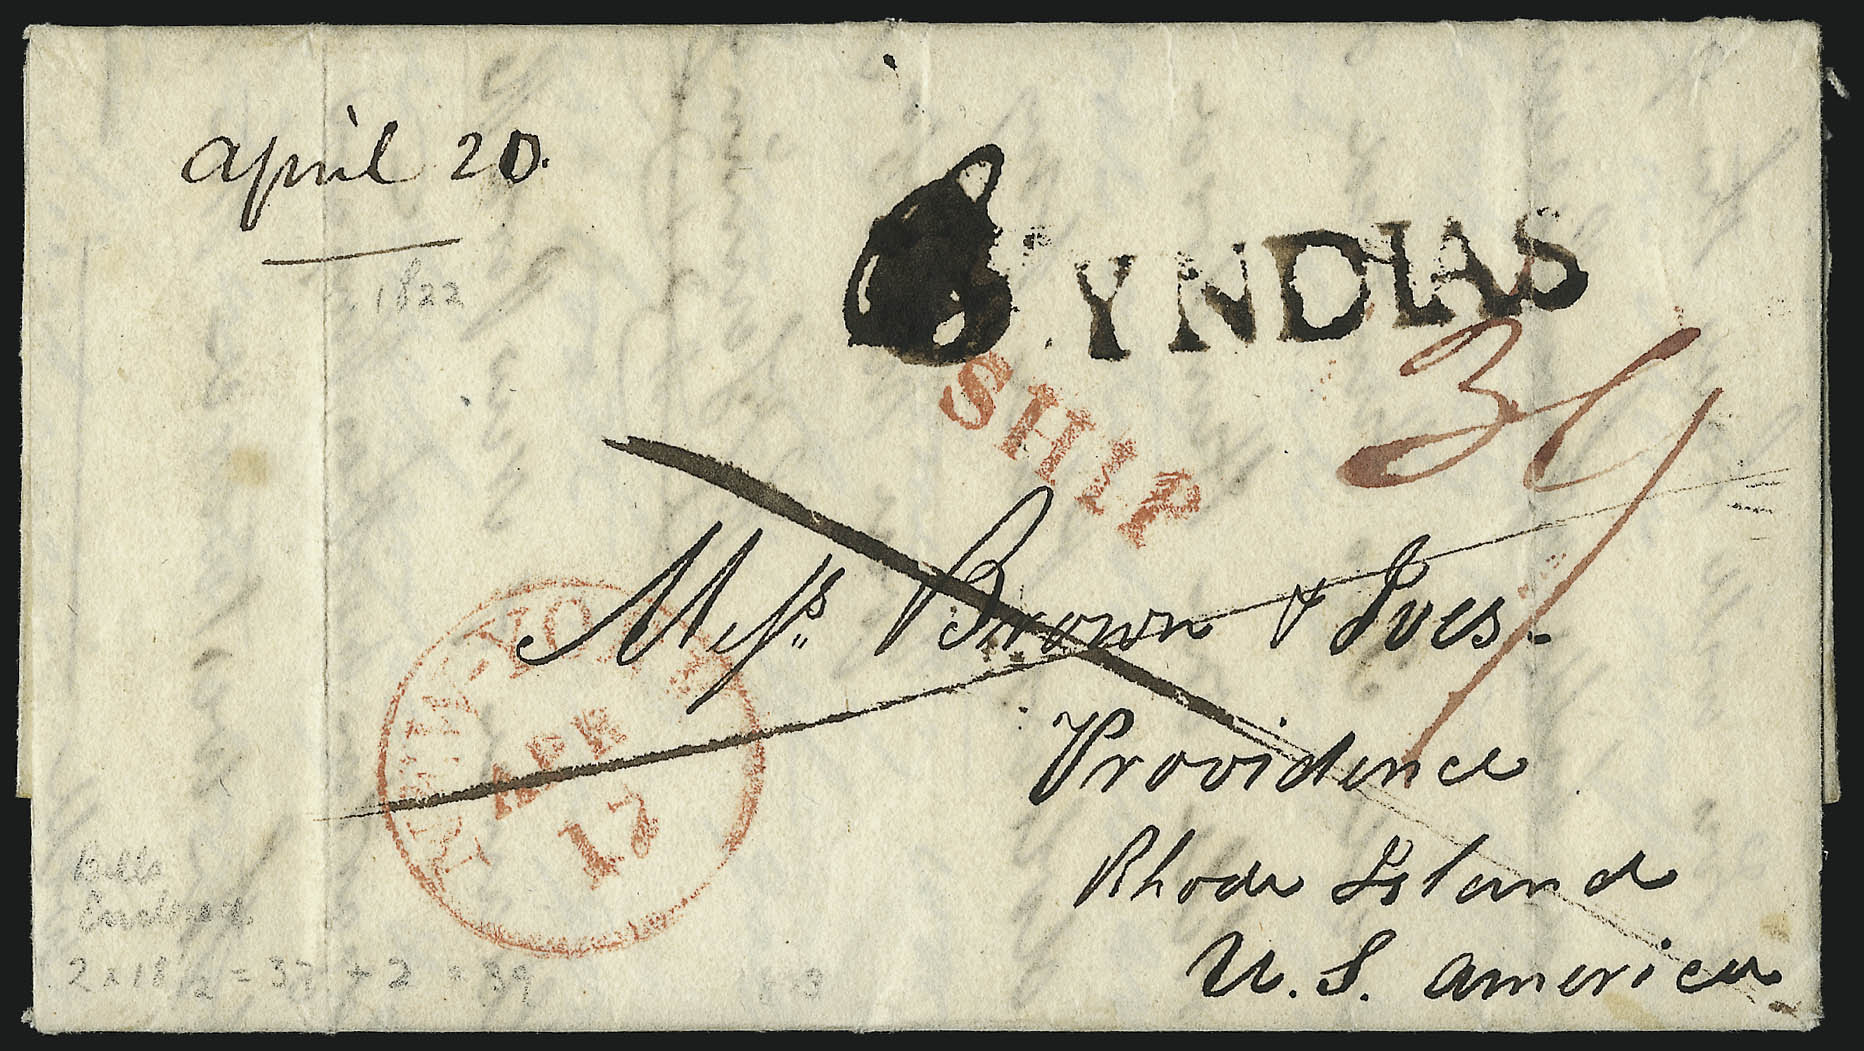 april 20.
1822
YNDIAS
SHIP
39
Mess.rs Brown & Ives.
Providence
Rhode Island
U. S. America
NEW-YORK
APR
17
Bills
Enclosed
2 x 18 1/2 = 37 + 2 = 39